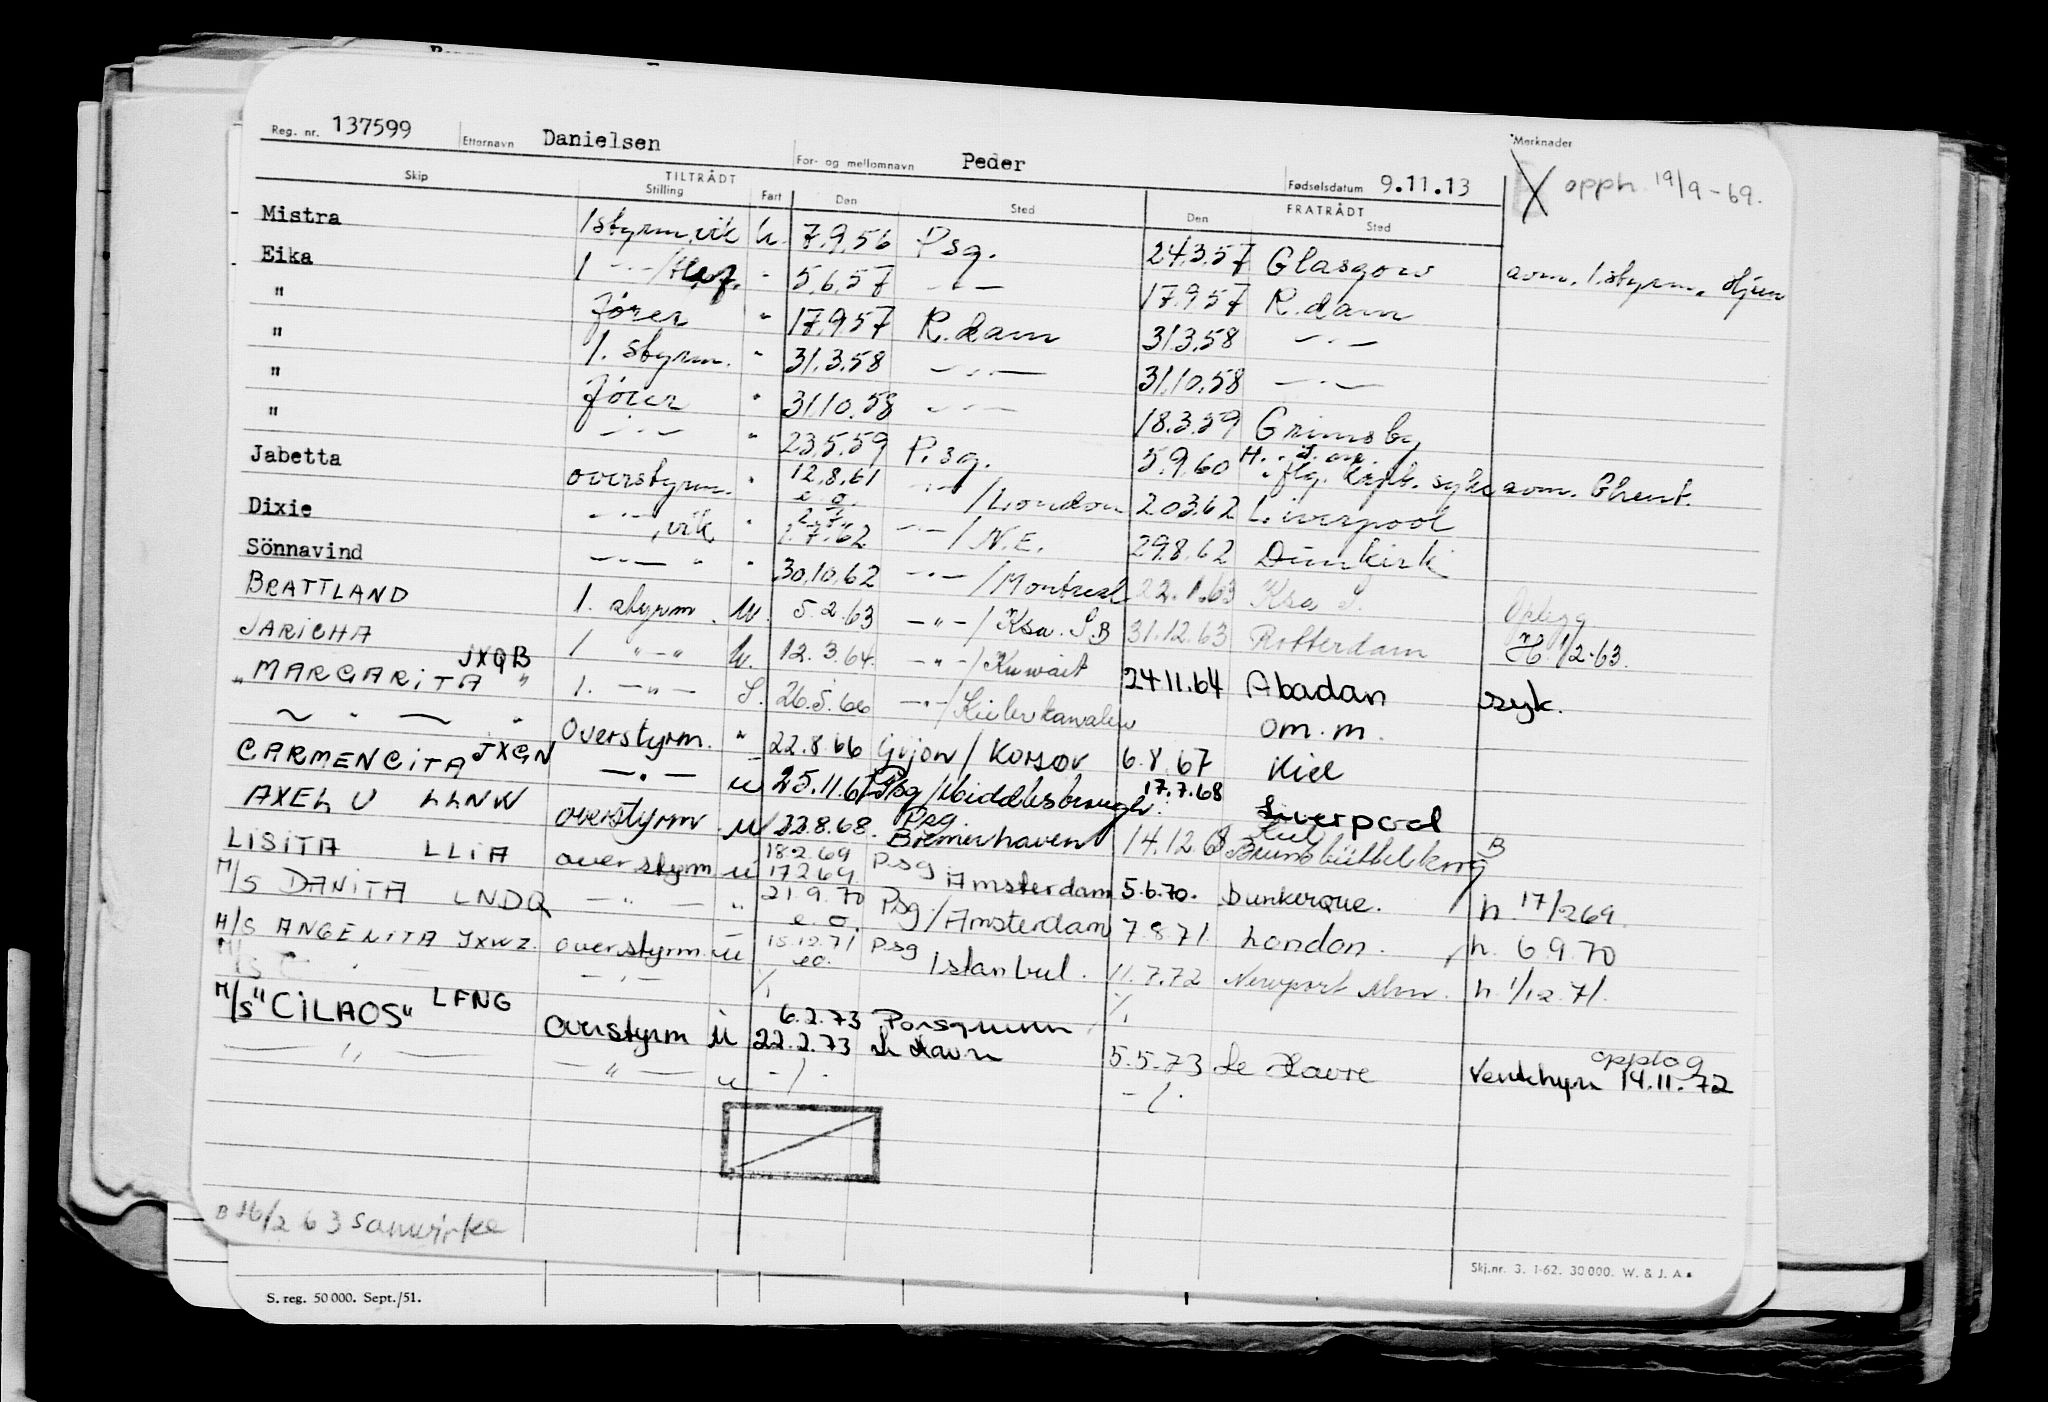 Reg. nr. 137599 Etternavn Danielsen For- og mellomnavn Peder Fødselsdatum 9.11.13 Merknader
X opph. 19/9-69.
TILTRÅDT FRATRÅDT
Skip Stilling Fart Den Sted Den Sted
Mistra 1 styrm. vik U. 7.9.56 Psg. 24.3.57 Glasgow avm. 1. styrm.
Eika 1 -"- " 5.6.57 -"- 17.9.57 R.dam
" fører " 17.9.57 R.dam 31.3.58 -"-
" 1. styrm. " 31.3.58 -"- 31.10.58 -"-
" fører " 31.10.58 -"- 18.3.59 Grimsby
" -"- " 23.5.59 P.sg. 5.9.60 syk avm. Ghent.
Jabetta overstyrm. " 12.8.61 e.o. -"- / London 20.3.62 Liverpool
Dixie -"- , vik " 1.7.62 -"- / N.E. 29.8.62 Dunkirk
Sönnavind -"- " " 30.10.62 -"- / Montreal 22.1.63 Ksa S. Opplegg
BRATTLAND 1. styrm. U. 5.2.63 -"- / Ksa. S.B 31.12.63 Rotterdam H 1/2-63.
JARICHA 1 "-" U. 12.3.64. -"- / Kuwait 24.11.64 Abadan syk.
" MARGARITA JXQB " 1. -"- S. 26.5.66 -"- / Kielerkanalen om.m.
~ " — " Overstyrm. " 22.8.66 Gijon / Korsør 6.8.67 Kiel
CARMENCITA JXGN -"- u 25.11.67 Psg / Middlesbrough. 17.7.68 Liverpool
AXEL U LLNW overstyrm U 22.8.68. Psg. Bremerhaven 14.12.68 Kiel Brunsbüttelkoog B
LISITA LLIA overstyrm u 18.2.69 17.2.69. Psg Amsterdam 5.6.70. Dunkerque. h. 17/2 69.
M/S DANITA LNDQ -"- " 21.9.70 e.o. Psg / Amsterdam 7.8.71. London. h. 6 9.70
M/S ANGENITA JXWZ. overstyrm. u 15.12.71 eo. Psg Istanbul. 11.7.72 Newport Mon. h. 1/12.71.
M/S -"- ./. ./.
M/S "CILAOS" LFNG Overstyrm U 6.2.73 22.2.73 Porsgrunn Le Havre 5.5.73 Le Havre opplag 14.11.72
— " — — " — u -/. -/.
B 26/2 63 Samvirke
Skj.nr. 3. 1-62. 30 000. W. & J. A.
S. reg. 50 000. Sept./51.